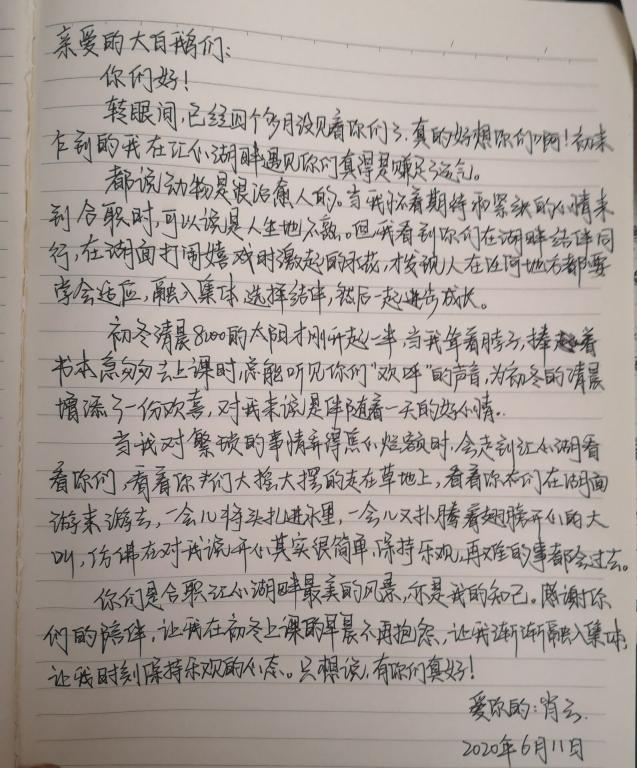 亲爱的大白鹅们：
你们好！
转眼间，已经四个多月没见着你们了，真的好想你们啊！初来
乍到的我在让心湖畔遇见你们真得是赚足了运气。
都说动物是很治愈人的。当我怀着期待和紧张的心情来
到合职时，可以说是人生地不熟。但我看到你们在湖畔结伴同
行，在湖面打闹嬉戏时激起的水花，才发现人在任何地方都要
学会适应，融入集体，选择结伴，然后一起进步成长。
初冬清晨8:00的太阳才刚升起一半，当我耸着脖子，捧着
书本急匆匆去上课时，总能听见你们“欢呼”的声音，为初冬的清晨
增添了一份欢喜，对我来说是伴随着一天的好心情。
当我对繁琐的事情弄得焦心烂额时，会走到让心湖看
看你们，看着你们大摇大摆的走在草地上，看着你们在湖面
游来游去，一会儿将头扎进水里，一会儿又扑腾着翅膀开心的大
叫，仿佛在对我说开心其实很简单，保持乐观，再难的事都会过去。
你们是合职让心湖畔最美的风景，亦是我的知己。感谢你
们的陪伴，让我在初冬上课的早晨不再抱怨，让我渐渐融入集体，
让我时刻保持乐观的心态。只想说，有你们真好！
爱你的：肖云
2020年6月11日